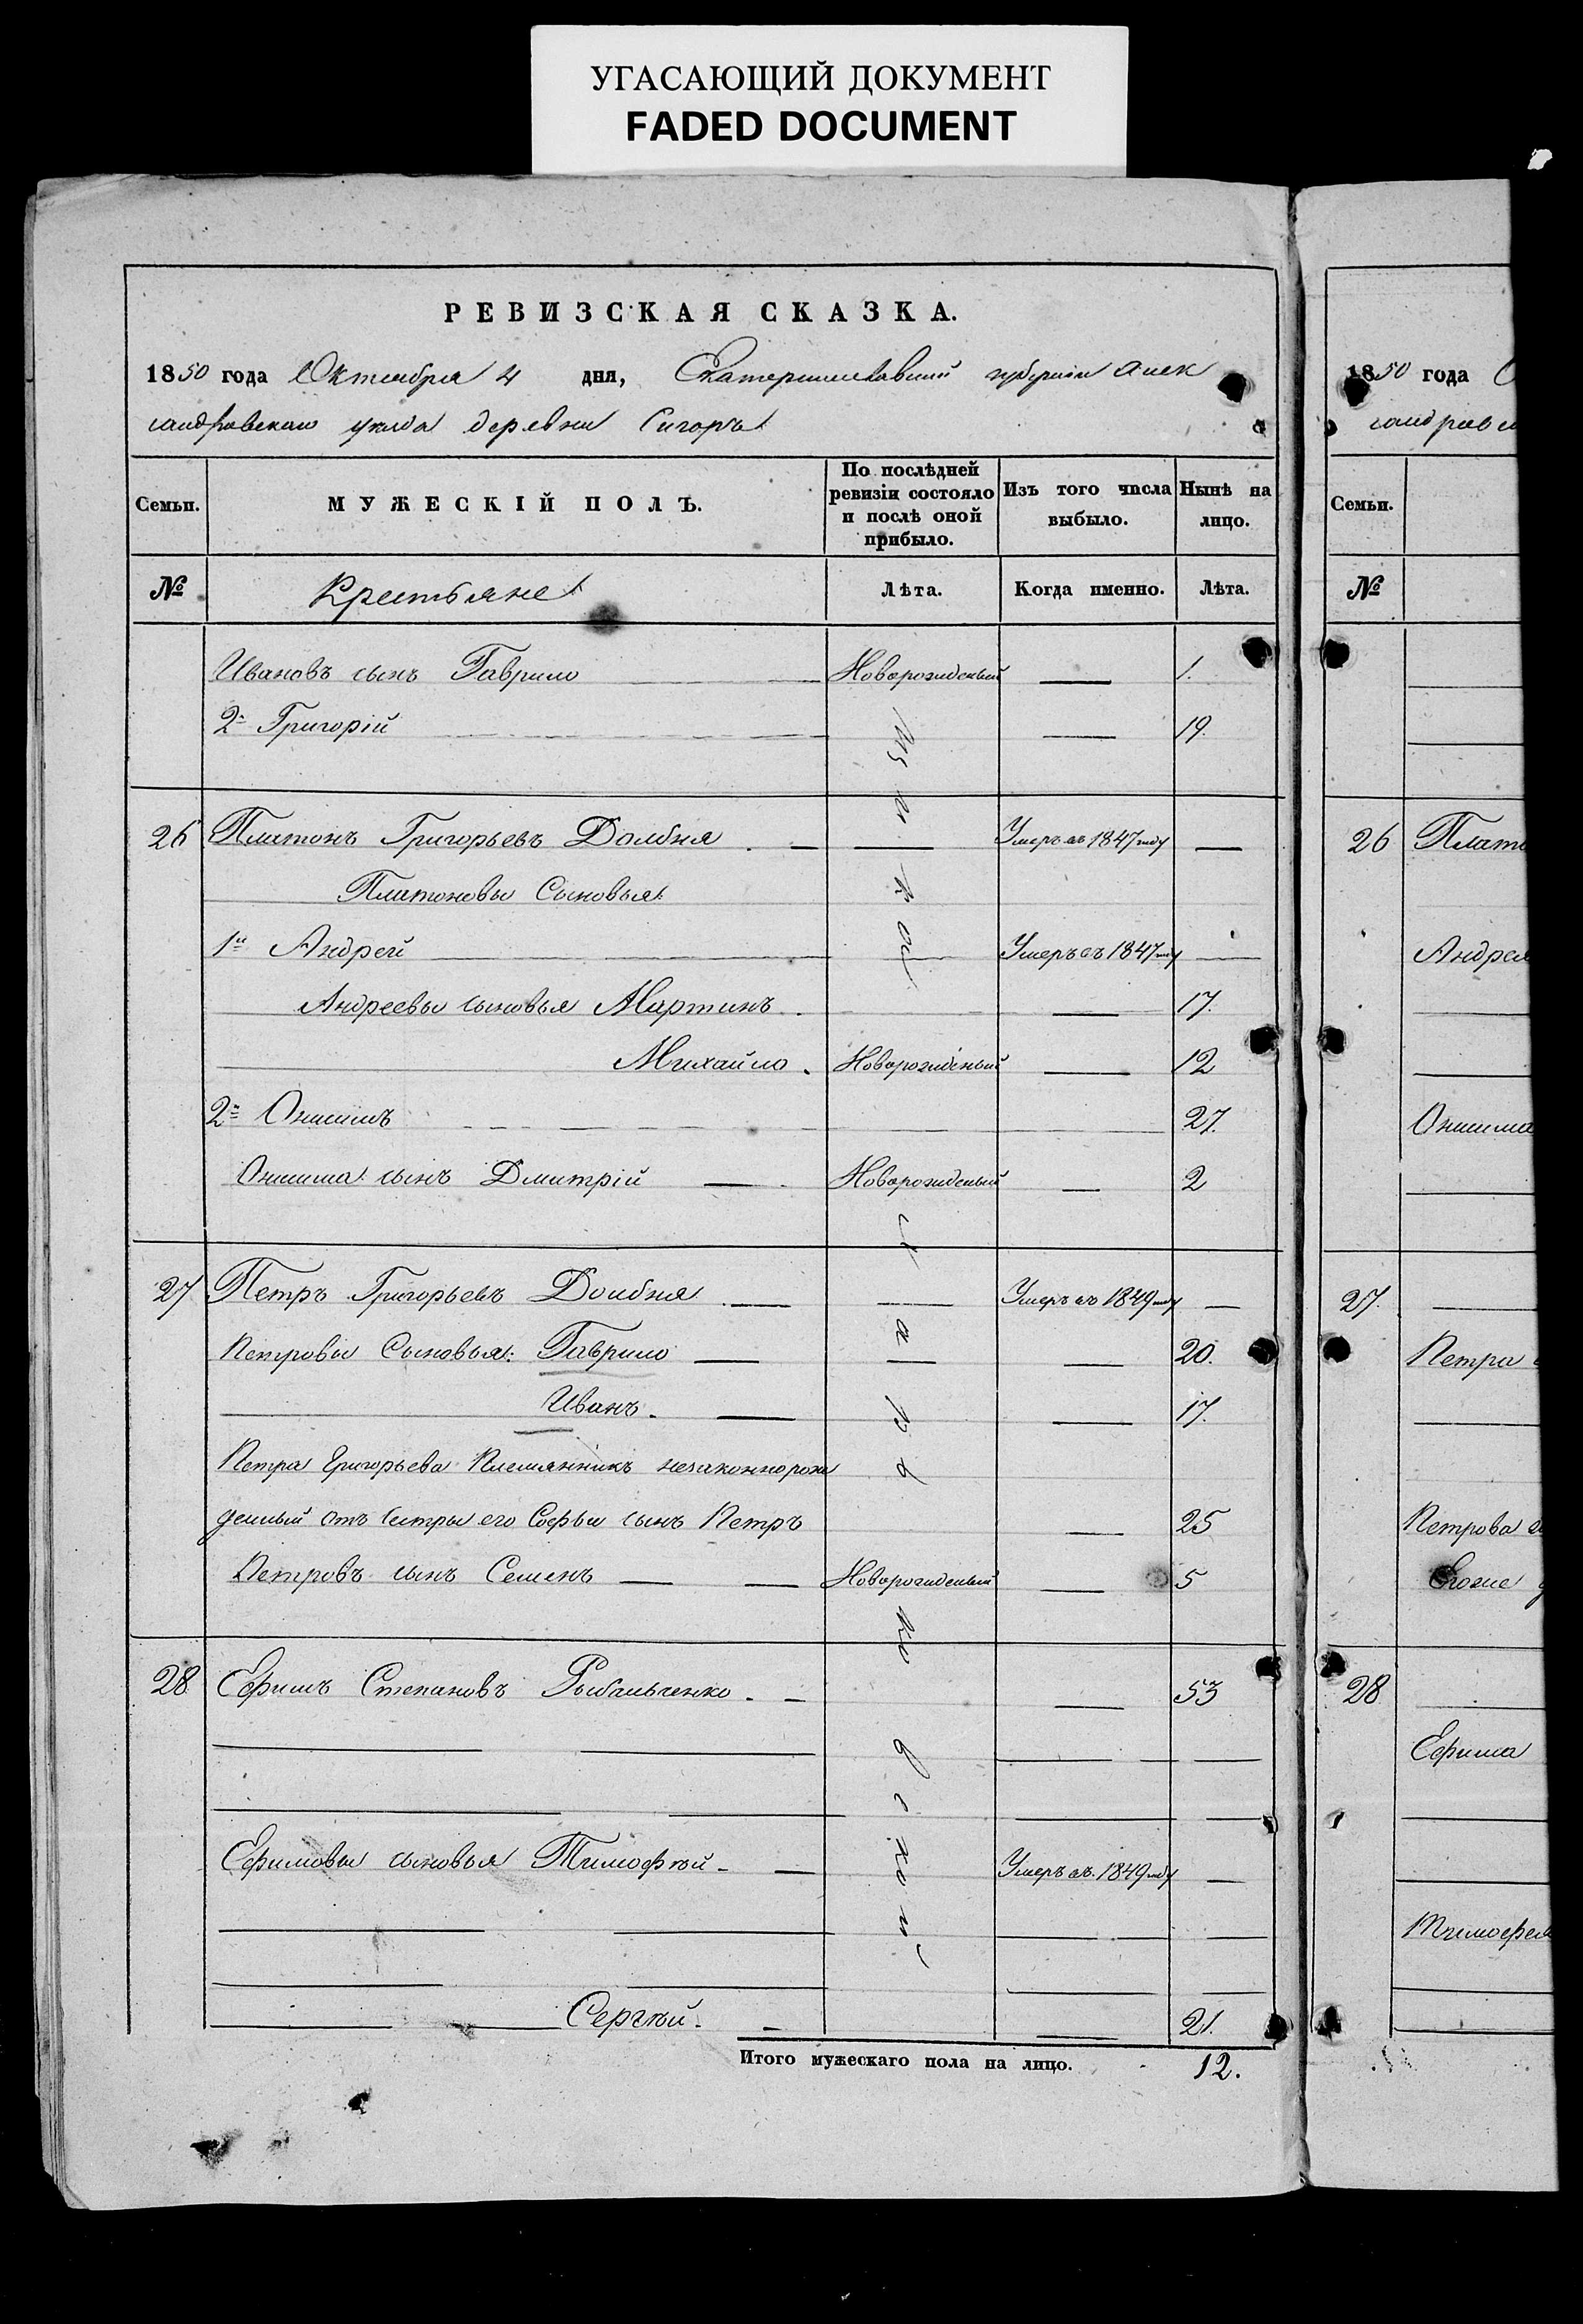 УГАСАЮЩИЙ ДОКУМЕНТ
FADED DOCUMENT
РЕВИЗСКАЯ СКАЗКА.
1850 года Октября 4 дня, Екатеринославской губернии Алек
сандровскаго уезда деревни Сигоръ
Семьи. МУЖЕСКІЙ ПОЛЪ. По послѣдней ревизіи состояло и послѣ оной прибыло. Изъ того числа выбыло. Нынѣ на лицо.
№ Крестьяне Лѣта. Когда именно. Лѣта.
Ивановъ сынъ Гаврило Новорожденый — 1.
2й Григорій — 19.
26 Платонъ Григорьевъ Долбня — — Умеръ въ 1847 году —
Платоновы Сыновья:
1й Андрей — Умеръ въ 1847 году —
Андреевы сыновья Мартинъ — 17.
Михайло. Новорожденый — 12
2й Онисимъ 27.
Онисима сынъ Дмитрій — Новорожденый — 2
27 Петръ Григорьевъ Долбня — — Умеръ въ 1849 году —
Петровы Сыновья: Гаврило — — — 20.
Иванъ. — — 17.
Петра Григорьева Племянникъ незаконнорож
денный отъ сестры его Софьи сынъ Петръ — 25
Петровъ сынъ Семенъ — — Новорожденый — 5
28 Ефимъ Степановъ Рыбальченко. — — 53
Ефимовы сыновья Тимофѣй — — Умеръ въ 1849 году —
Сергѣй. — — 21.
Итого мужескаго пола на лицо. 12.
1850 года
сандровс
Семьи.
№
26 Плато
Андрея
Онисима
27.
Петра
Петрова
Егоже
28
Ефима
Тимофея